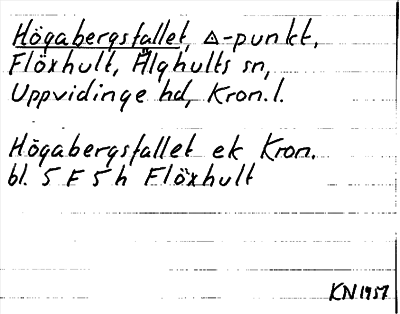 Högabergsfallet, △-punkt,
Flöxhult, Älghults sn,
Uppvidinge hd, Kron.l.
Högabergsfallet ek Kron.
bl. 5 F 5 h Flöxhult
KN 1957